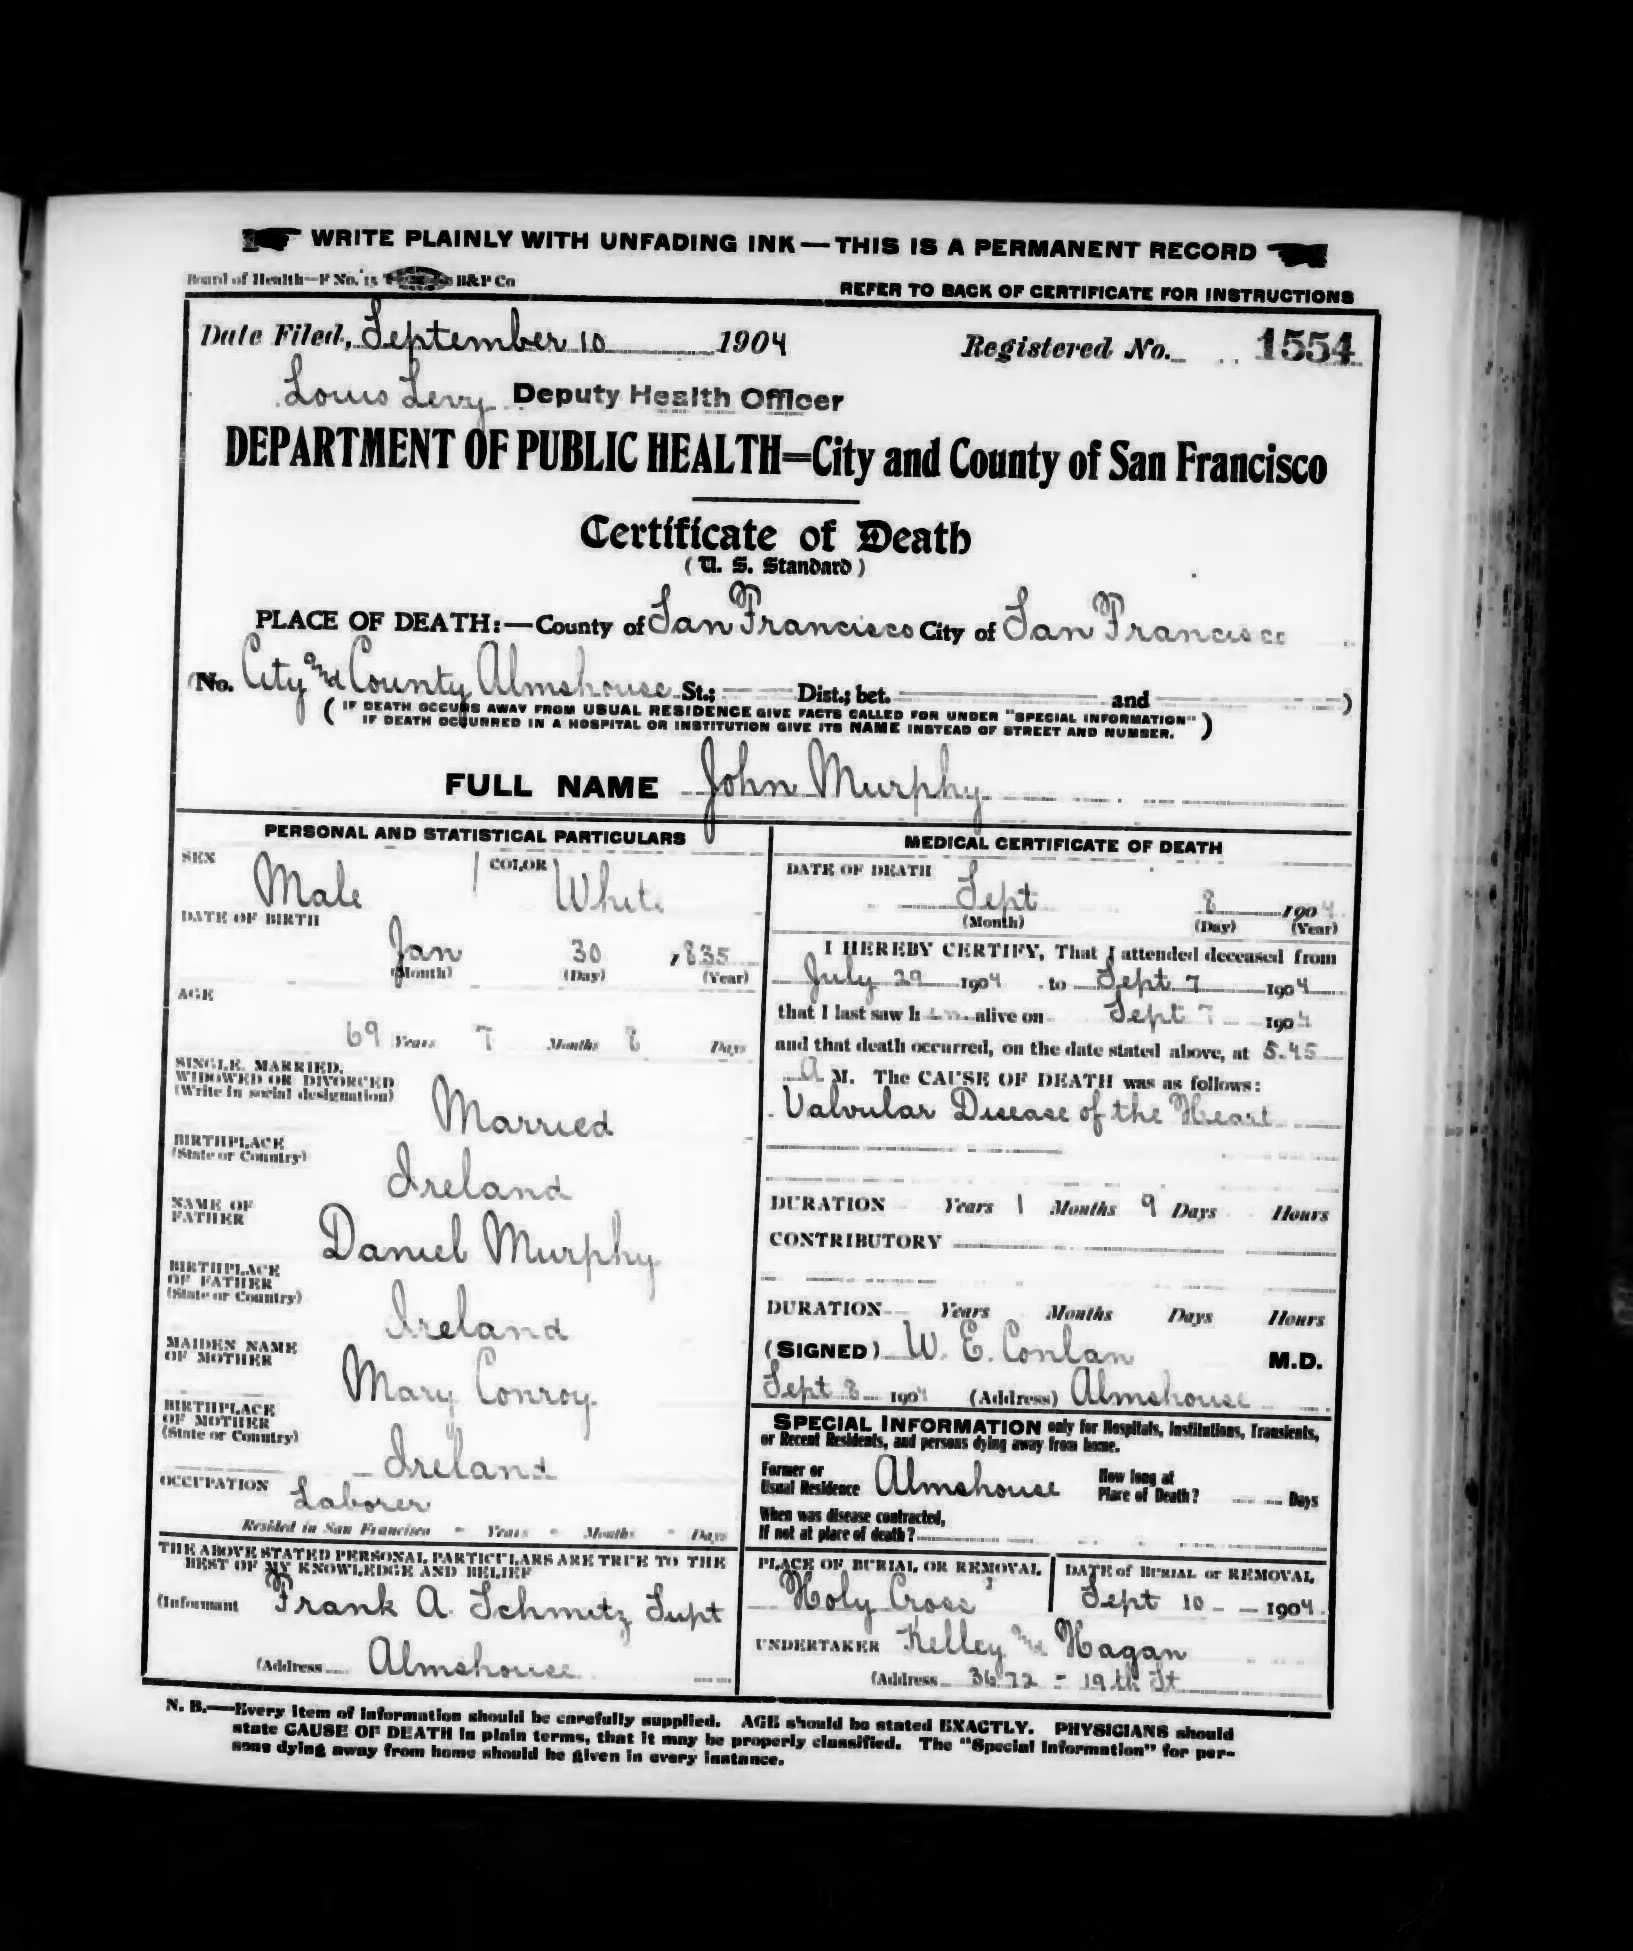 WRITE PLAINLY WITH UNFADING INK—THIS IS A PERMANENT RECORD
Board of Health—F No. 15 H&P Co
REFER TO BACK OF CERTIFICATE FOR INSTRUCTIONS
Date Filed, September 10 1904 Registered No. 1554
Louis Levy Deputy Health Officer
DEPARTMENT OF PUBLIC HEALTH=City and County of San Francisco
Certificate of Death
(U. S. Standard)
PLACE OF DEATH:—County of San Francisco City of San Francisco
No. City and County Almshouse St.; Dist.; bet. and )
( IF DEATH OCCURS AWAY FROM USUAL RESIDENCE GIVE FACTS CALLED FOR UNDER "SPECIAL INFORMATION"
IF DEATH OCCURRED IN A HOSPITAL OR INSTITUTION GIVE ITS NAME INSTEAD OF STREET AND NUMBER. )
FULL NAME John Murphy
PERSONAL AND STATISTICAL PARTICULARS
SEX Male COLOR White
DATE OF BIRTH
Jan 30 1835
(Month) (Day) (Year)
AGE
69 Years 7 Months 8 Days
SINGLE, MARRIED,
WIDOWED OR DIVORCED
(Write in social designation)
Married
BIRTHPLACE
(State or Country)
Ireland
NAME OF
FATHER
Daniel Murphy
BIRTHPLACE
OF FATHER
(State or Country)
Ireland
MAIDEN NAME
OF MOTHER
Mary Conroy
BIRTHPLACE
OF MOTHER
(State or Country)
Ireland
OCCUPATION Laborer
Resided in San Francisco - Years - Months - Days
THE ABOVE STATED PERSONAL PARTICULARS ARE TRUE TO THE
BEST OF MY KNOWLEDGE AND BELIEF
(Informant Frank A. Schmitz Supt
(Address Almshouse
MEDICAL CERTIFICATE OF DEATH
DATE OF DEATH
Sept 8 1904
(Month) (Day) (Year)
I HEREBY CERTIFY, That I attended deceased from
July 29 1904 to Sept 7 1904
that I last saw him alive on Sept 7 1904
and that death occurred, on the date stated above, at 5.45
A M. The CAUSE OF DEATH was as follows:
Valvular Disease of the Heart
DURATION Years 1 Months 9 Days Hours
CONTRIBUTORY
DURATION Years Months Days Hours
(SIGNED) W. E. Conlan M.D.
Sept 8 1904 (Address) Almshouse
SPECIAL INFORMATION only for Hospitals, Institutions, Transients,
or Recent Residents, and persons dying away from home.
Former or
Usual Residence Almshouse
How long at
Place of Death? Days
When was disease contracted,
If not at place of death?
PLACE OF BURIAL OR REMOVAL
Holy Cross
DATE of BURIAL or REMOVAL
Sept 10 1904
UNDERTAKER Kelley and Hagan
(Address 3672 = 19th St
N. B.—Every item of information should be carefully supplied. AGE should be stated EXACTLY. PHYSICIANS should
state CAUSE OF DEATH in plain terms, that it may be properly classified. The "Special Information" for per-
sons dying away from home should be given in every instance.